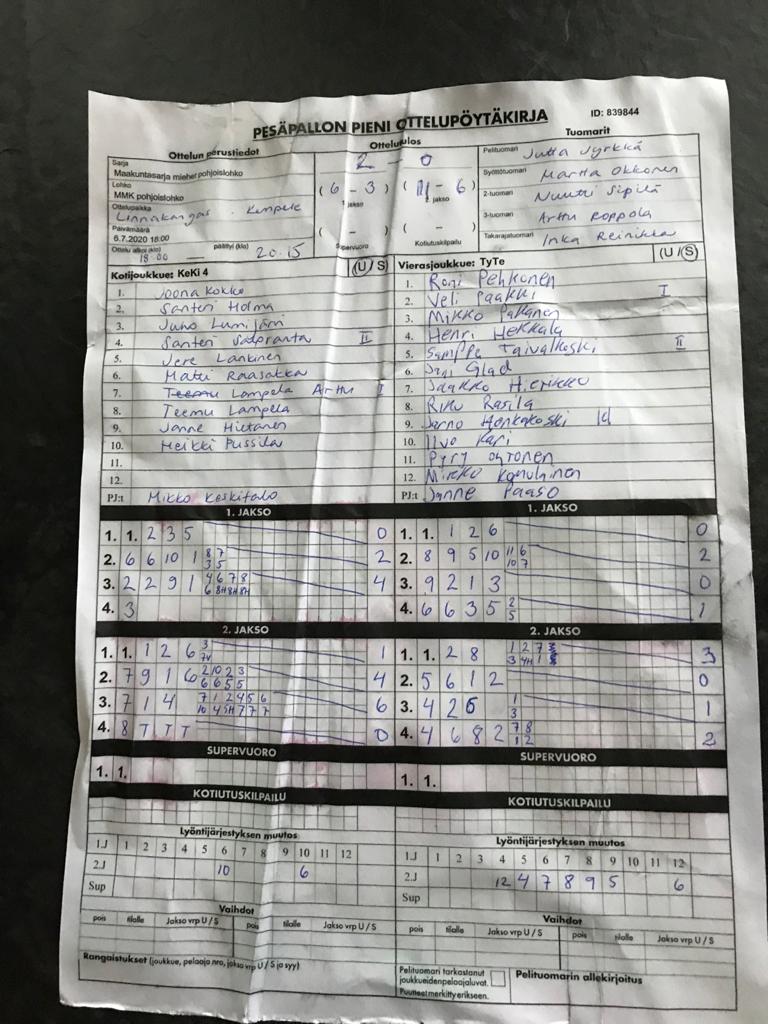 PESÄPALLON PIENI OTTELUPÖYTÄKIRJA ID: 839844
Ottelun perustiedot Ottelutulos Tuomarit
Sarja
Maakuntasarja miehet pohjoislohko
Lohko
MMK pohjoislohko
Ottelupaikka
Linnakangas Kempele
Päivämäärä
6.7.2020 18:00
Ottelu alkoi (klo) 18.00 päättyi (klo) 20.15
2 - 0
( 6 - 3 ) ( 11 - 6 )
1. jakso 2. jakso
( - ) ( - )
Supervuoro Kotiutuskilpailu
Pelituomari Jutta Jyrkkä
Syöttötuomari Martta Okkonen
2-tuomari Nuutti Sipilä
3-tuomari Arttu Roppola
Takarajatuomari Inka Reinikka
Kotijoukkue: KeKi 4 (U / S)
1. Joona Kokko
2. Santeri Holma
3. Juho Lumijärvi
4. Santeri Salpranta II
5. Jere Lankinen
6. Matti Raasakka
7. Teemu Lampela Arttu I
8. Teemu Lampela
9. Janne Hietanen
10. Heikki Pussila
11.
12.
PJ:t Mikko Keskitalo
Vierasjoukkue: TyTe (U / S)
1. Roni Pehkonen
2. Veli Paakki I
3. Mikko Pakanen
4. Henri Hekkala
5. Samppa Taivalkoski II
6. Jani Glad
7. Jaakko Hietikko
8. Riku Rasila
9. Jarno Honkakoski
10. Iivo Kari
11. Pyry Ohtonen
12. Mirko Komulainen
PJ:t Janne Paaso
1. JAKSO 1. JAKSO
1. 1. 2 3 5 0
2. 6 6 10 1 8 7 3 5 2
3. 2 2 9 1 4 6 7 8 6 8H 8H 8H 4
4. 3
1. 1. 1 2 6 0
2. 8 9 5 10 11 6 10 7 2
3. 9 2 1 3 0
4. 6 6 3 5 2 5 1
2. JAKSO 2. JAKSO
1. 1. 1 2 6 3 7V 1
2. 7 9 1 6 2 10 2 3 6 6 5 5 4
3. 7 1 4 7 1 2 4 5 6 10 4 5H 7 7 7 6
4. 8 T T T 0
1. 1. 2 8 1 2 7 3 4H 1 3
2. 5 6 1 2 0
3. 4 2 6 1 3 1
4. 4 6 8 2 7 8 1 2 2
SUPERVUORO SUPERVUORO
1. 1. 1. 1.
KOTIUTUSKILPAILU KOTIUTUSKILPAILU
Lyöntijärjestyksen muutos
1.J 1 2 3 4 5 6 7 8 9 10 11 12
2.J 10 6
Sup
Lyöntijärjestyksen muutos
1.J 1 2 3 4 5 6 7 8 9 10 11 12
2.J 12 4 7 8 9 5 6
Sup
Vaihdot Vaihdot
pois tilalle Jakso vrp U / S pois tilalle Jakso vrp U / S
pois tilalle Jakso vrp U / S pois tilalle Jakso vrp U / S
Rangaistukset (joukkue, pelaaja nro, jakso vrp U / S ja syy)
Pelituomari tarkastanut
joukkueidenpelaajaluvat.
Puutteet merkitty erikseen.
Pelituomarin allekirjoitus